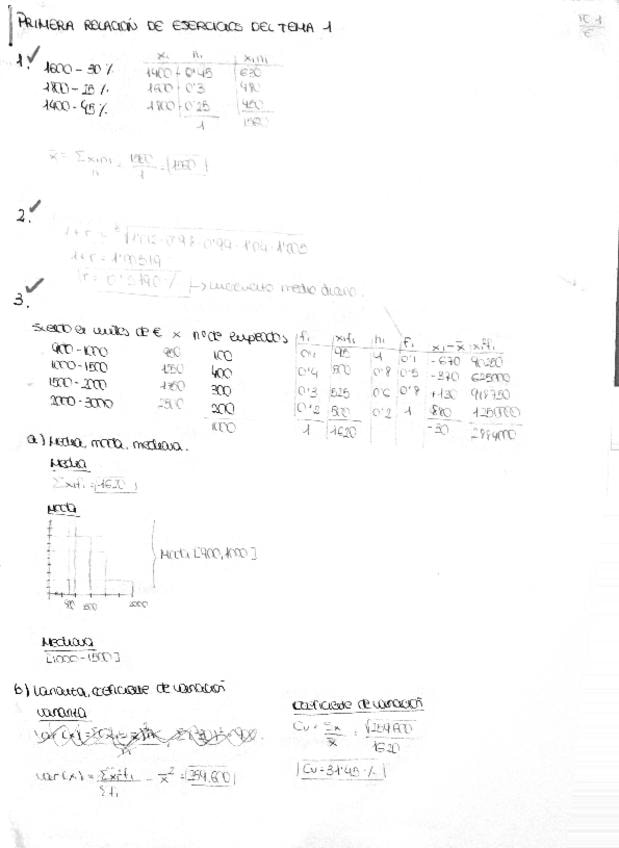 PRIMERA RELACIÓN DE EJERCICIOS DEL TEMA 1
1. xi ni xini
1600 - 30% 1400 0'45 630
1800 - 25% 1600 0'3 480
1400 - 45% 1800 0'25 450
1 1560
x̄ = Σxini / n = 1560 / 1 = 1560
2.
1+r =
1+r = 1'00319
r = 0'3190% → incremento medio diario.
3.
Sueldo en miles de € x nº de empleados fi xifi hi Fi xi-x̄ xi²fi
900 - 1000 950 100 0'1 95 1 0'1 -670 90250
1000 - 1500 1250 400 0'4 500 0'8 0'5 -370 625000
1500 - 2000 1750 300 0'3 525 0'6 0'8 +130 918750
2000 - 3000 2500 200 0'2 500 0'2 1 880 1250000
1000 1 1620 -30 2884000
a) Media, moda, mediana.
Media
Σxifi = 1620
Moda
Moda [900, 1000]
Mediana
[1000 - 1500]
b) Varianza, coeficiente de variación
Varianza
Var(x) = Σxi²fi / Σfi - x̄² = 259.600
Coeficiente de variación
Cv = Σx / x̄ = √259.600 / 1620
Cv = 31'45%